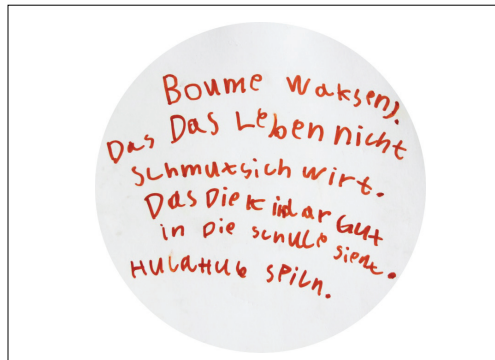 Boume waksen).
Das Das Leben nicht
schmuxsich wirt.
Das Die Kindar Gut
in Die schule sient.
HULAHUb SPiLn.